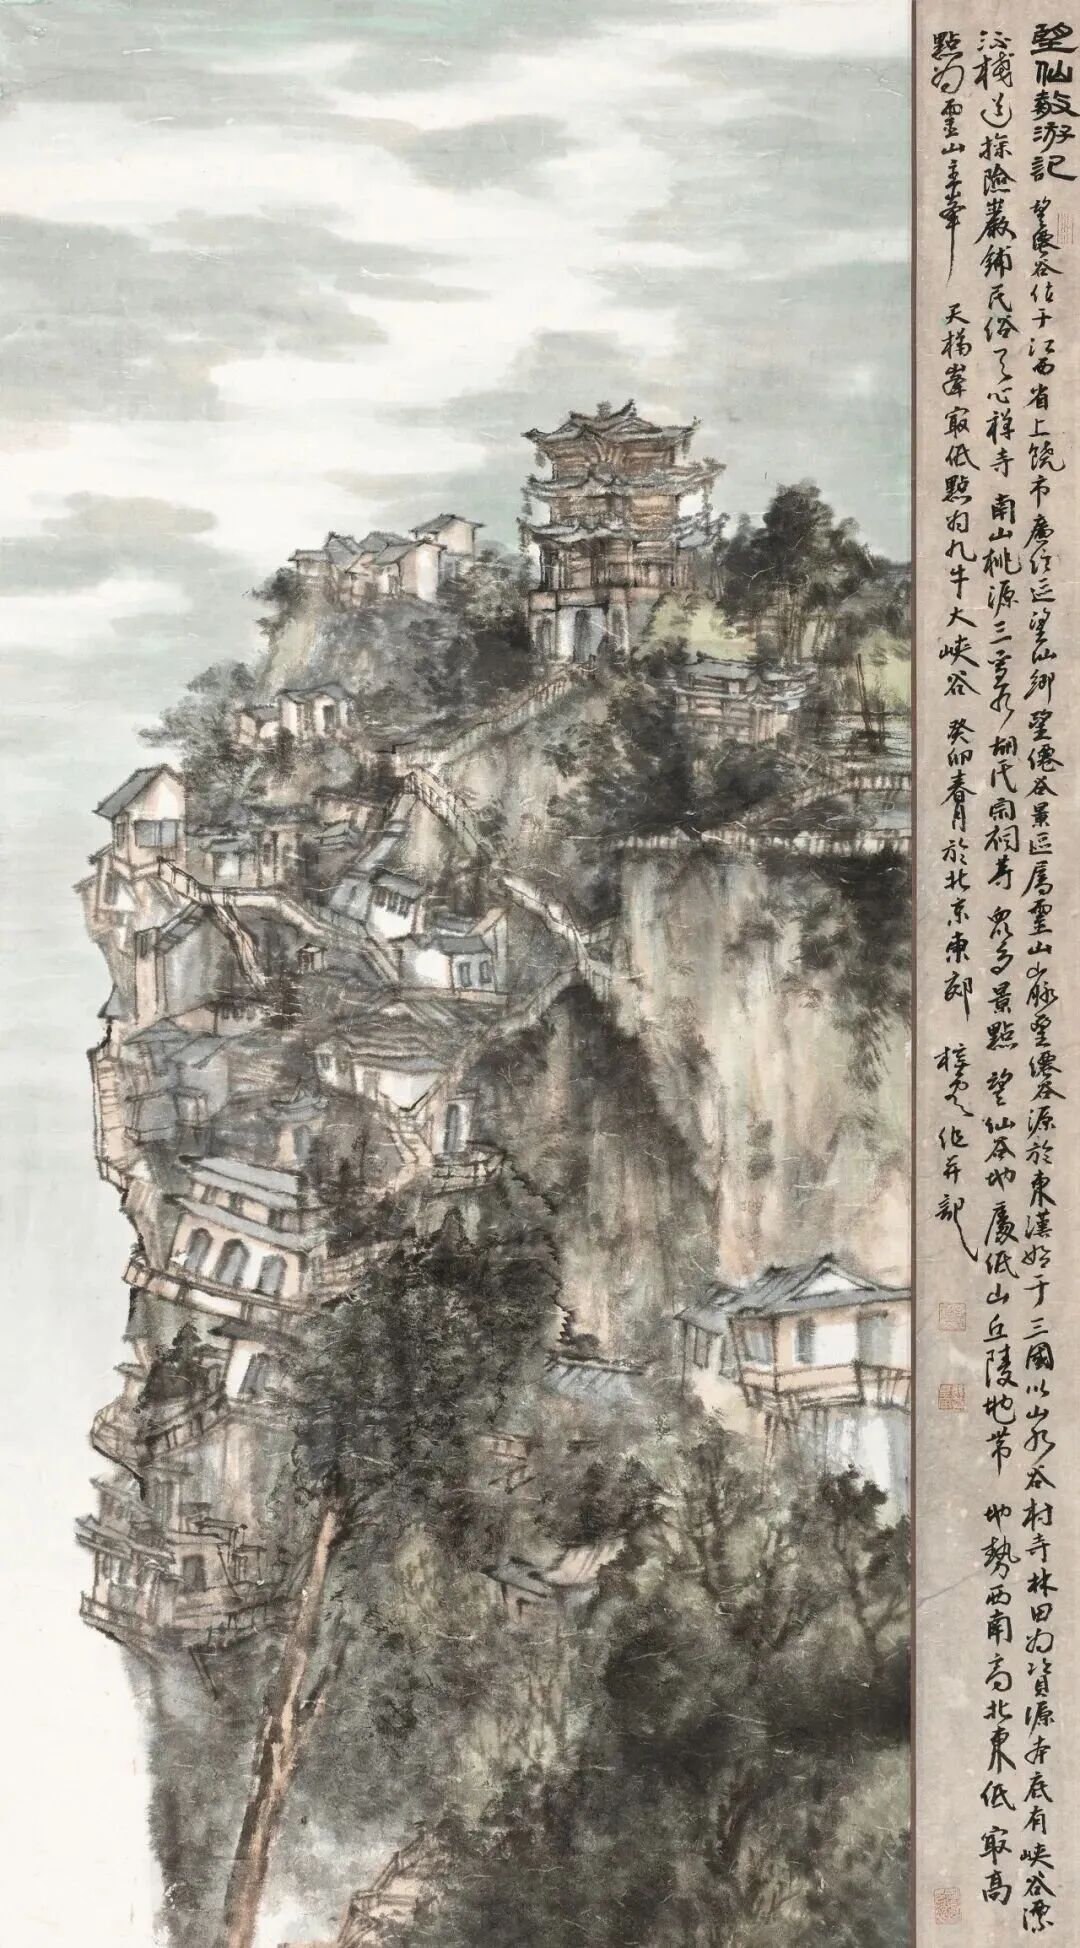 望仙游記 望僊谷位于江西省上饶市廣信区望仙鄉 望僊谷景区屬靈山山脉 望僊谷源於東漢始于三國以山水谷村寺林田为資源夲底有峽谷漂
流棧道探險巖鋪民俗天心禅寺 南山桃源三疊水 胡氏宗祠等 眾多景點 望仙谷地處低山丘陵地带 地勢西南高北東低 㝡高
點为靈山主峯 天梯峯㝡低點为九牛大峽谷 癸卯春月於北京東郊 梓作并記